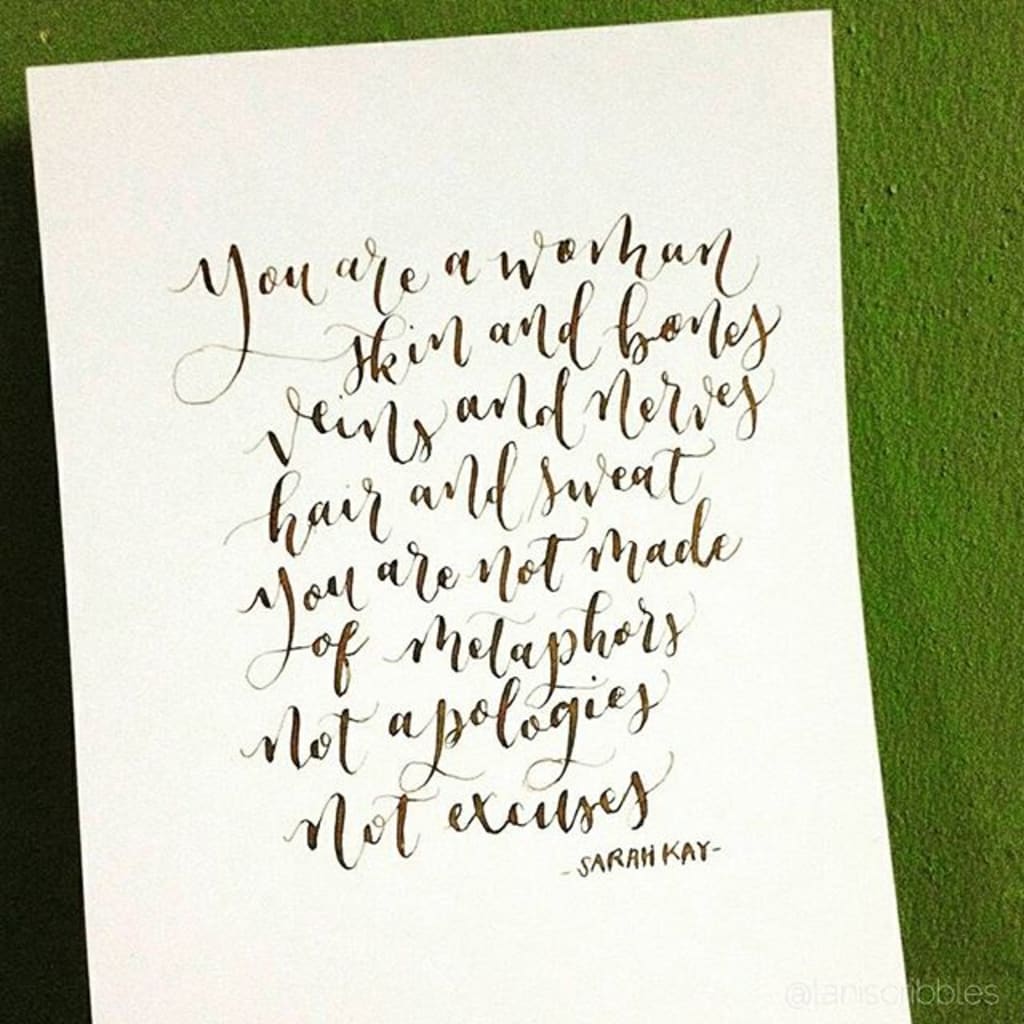 You are a woman
skin and bones
veins and nerves
hair and sweat
You are not made
of metaphors
Not apologies
Not excuses
-SARAH KAY-
@laniscribbles